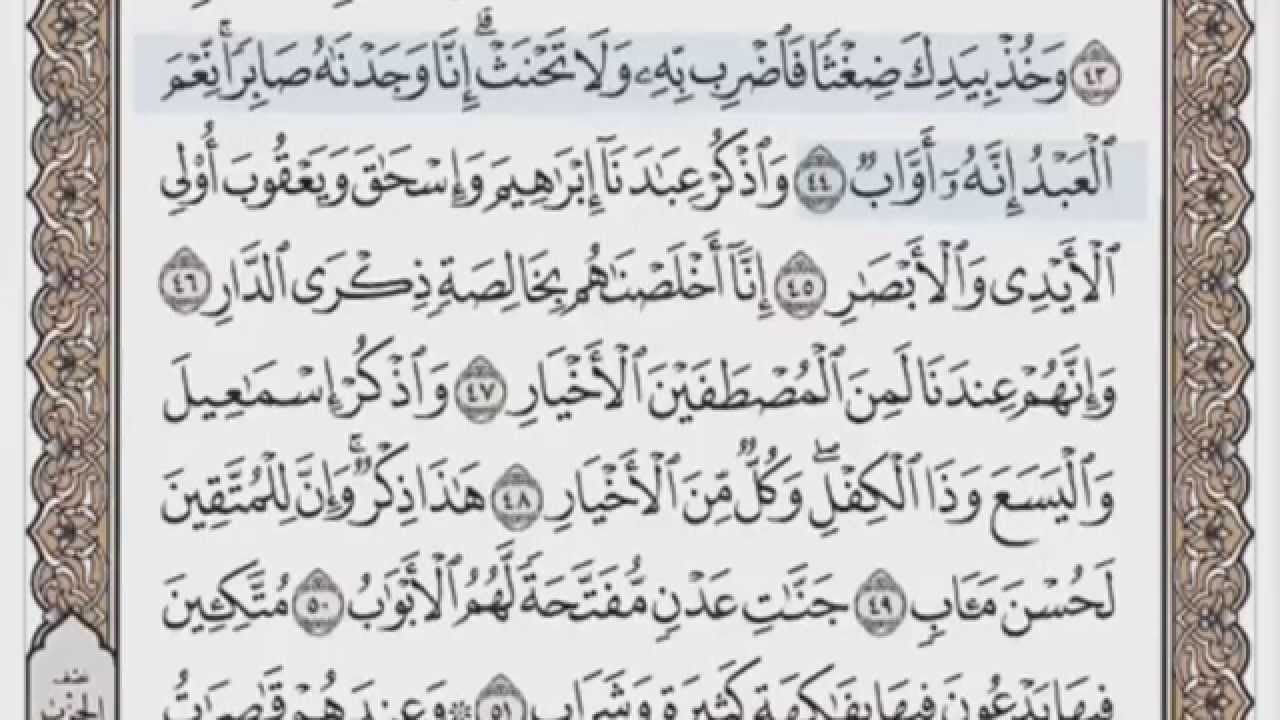 ٤٣ وَخُذْ بِيَدِكَ ضِغْثًا فَٱضْرِب بِّهِۦ وَلَا تَحْنَثْ ۗ إِنَّا وَجَدْنَٰهُ صَابِرًا ۚ نِّعْمَ
ٱلْعَبْدُ إِنَّهُۥٓ أَوَّابٌ ٤٤ وَٱذْكُرْ عِبَٰدَنَآ إِبْرَٰهِيمَ وَإِسْحَٰقَ وَيَعْقُوبَ أُو۟لِى
ٱلْأَيْدِى وَٱلْأَبْصَٰرِ ٤٥ إِنَّآ أَخْلَصْنَٰهُم بِخَالِصَةٍ ذِكْرَى ٱلدَّارِ ٤٦
وَإِنَّهُمْ عِندَنَا لَمِنَ ٱلْمُصْطَفَيْنَ ٱلْأَخْيَارِ ٤٧ وَٱذْكُرْ إِسْمَٰعِيلَ
وَٱلْيَسَعَ وَذَا ٱلْكِفْلِ ۖ وَكُلٌّ مِّنَ ٱلْأَخْيَارِ ٤٨ هَٰذَا ذِكْرٌ ۚ وَإِنَّ لِلْمُتَّقِينَ
لَحُسْنَ مَـَٔابٍ ٤٩ جَنَّٰتِ عَدْنٍ مُّفَتَّحَةً لَّهُمُ ٱلْأَبْوَٰبُ ٥٠ مُتَّكِـِٔينَ
فِيهَا يَدْعُونَ فِيهَا بِفَٰكِهَةٍ كَثِيرَةٍ وَشَرَابٍ ٥١ ۞ وَعِندَهُمْ قَٰصِرَٰتُ
نصف
الحزب